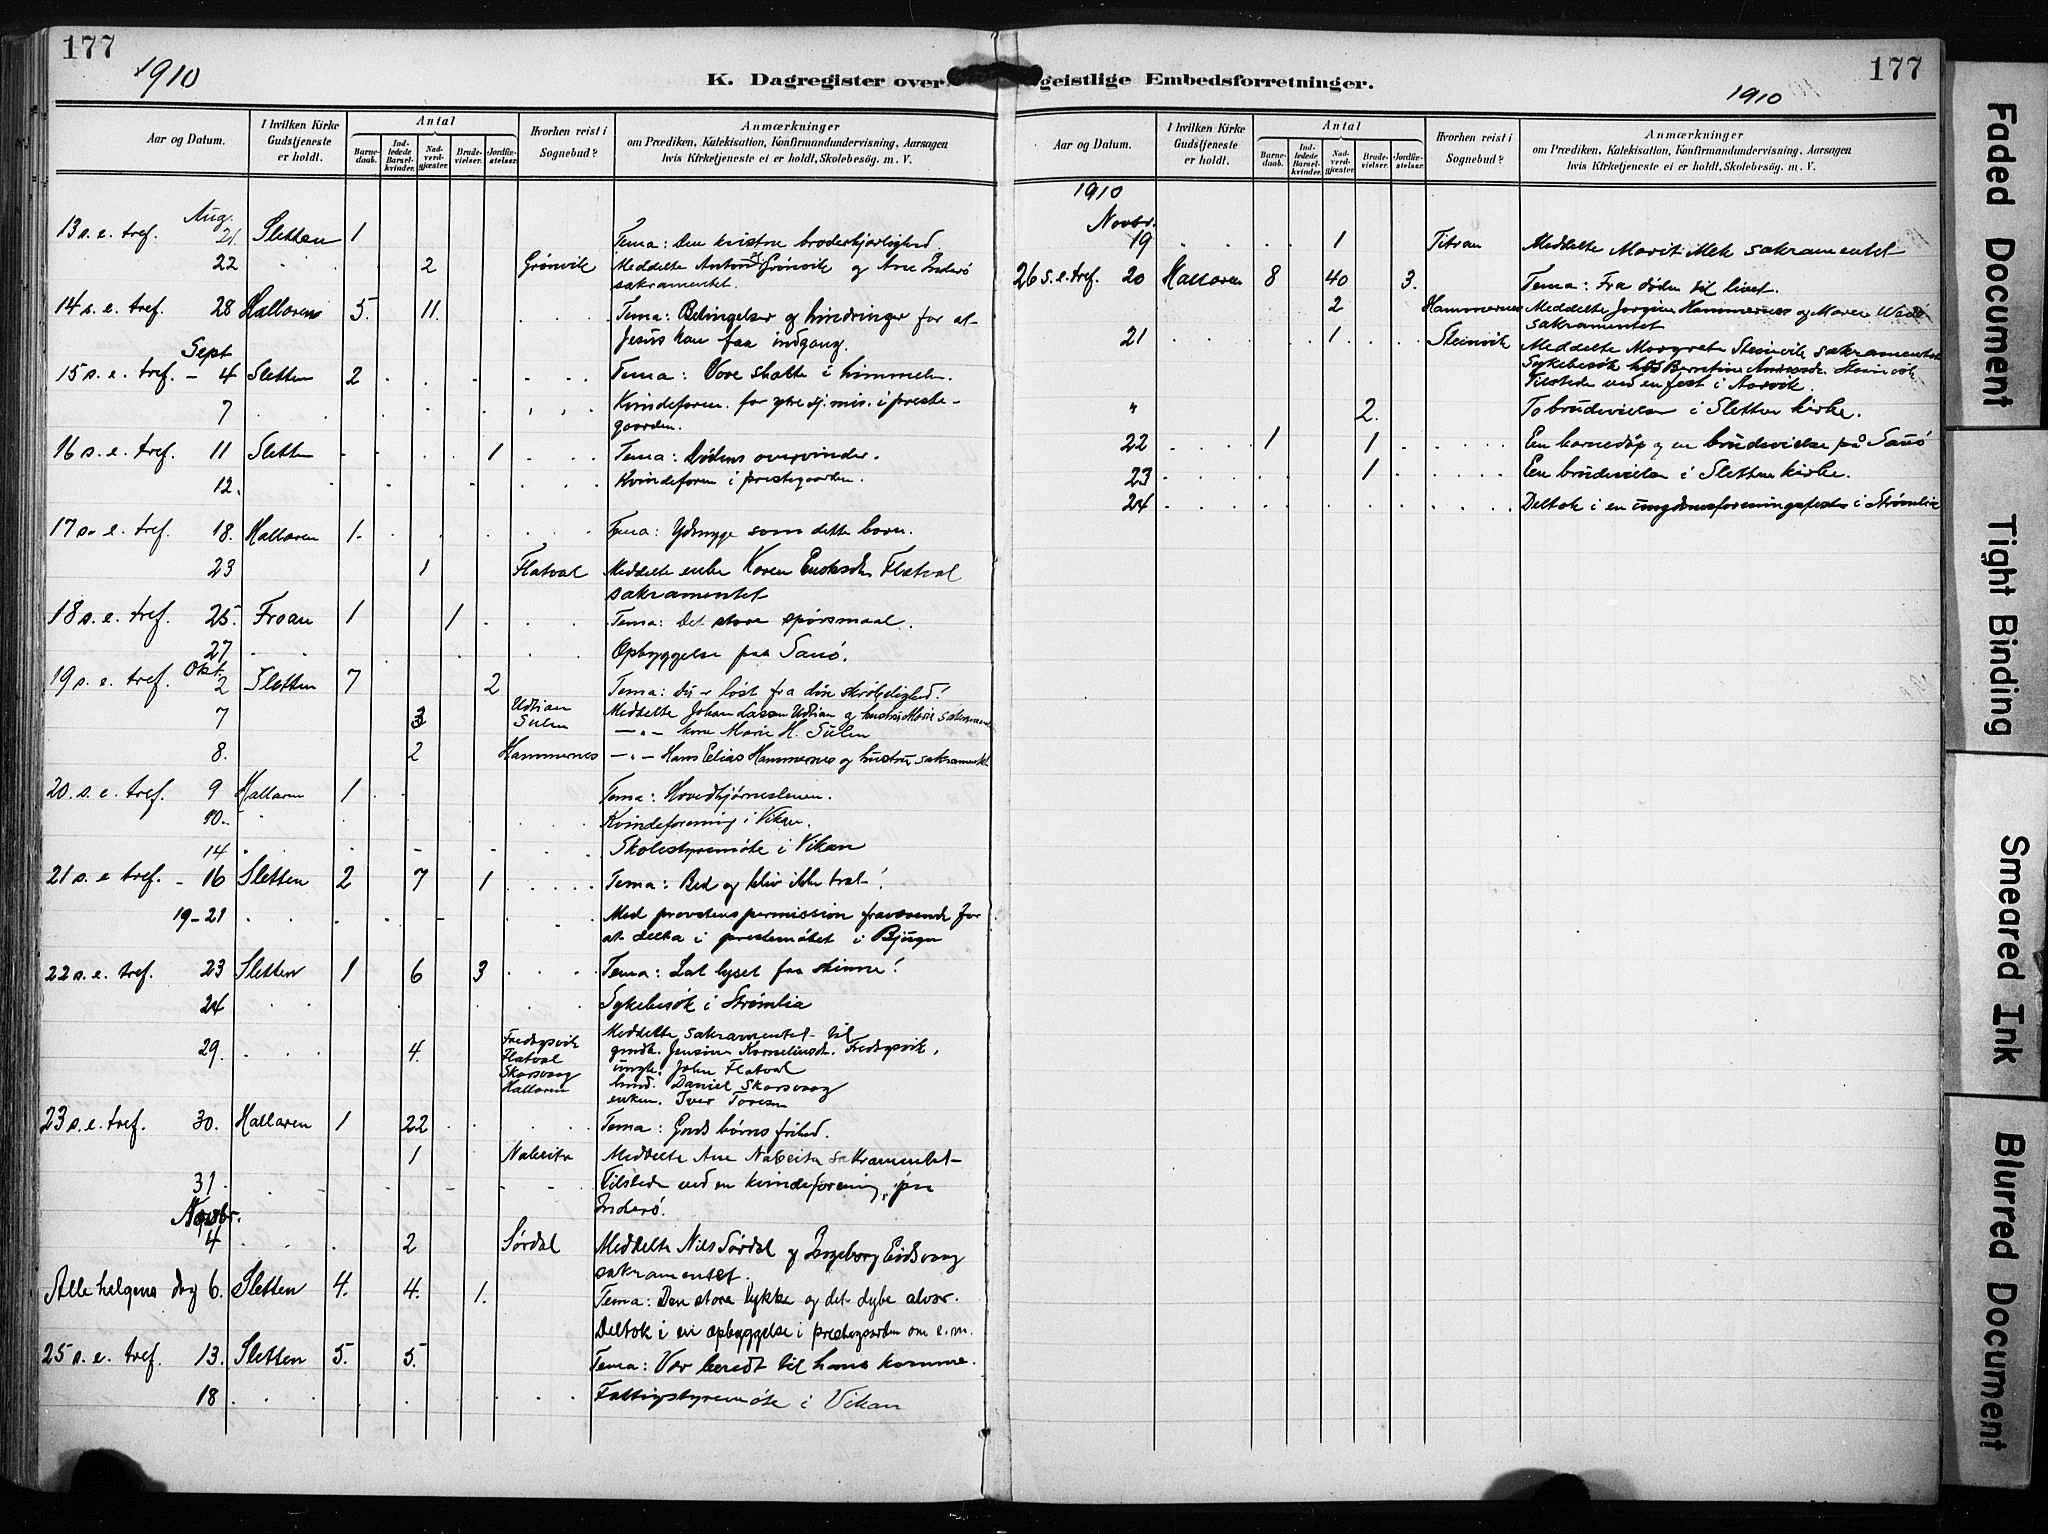 177
1910
K. Dagregister over geistlige Embedsforretninger.
177
1910
Aar og Datum. I hvilken Kirke Gudstjeneste er holdt. Antal Barnedaab. Indledede Barselkvinder. Nadverdgjæster. Brudevielser. Jordfæstelser. Hvorhen reist i Sognebud? Anmærkninger om Prædiken, Katekisation, Konfirmandundervisning, Aarsagen hvis Kirketjeneste ei er holdt, Skolebesøg. m. V.
Aug.
13 s. e. tref. 21. Sletten 1 Tema: Den kristne broderkjærlighed.
22 2 Grønvik Meddelte Anton Grønvik og Ane Inderø
sakramentet.
14 s. e. tref. 28 Hallaren 5. 11. Tema: Betingelser og hindringer for at
Jesus kan faa indgang.
Sept
15 s. e. tref. - 4 Sletten 2 Tema: Vore skatte i himmelen.
7 Kvindeforen. for ytre sj. mis. i preste-
gaarden.
16 s. e. tref. 11 Sletten 1 Tema: Dødens overvinder.
12. Kvindeforen i prestegaarden.
17 s. e. tref. 18. Hallaren 1. Tema: Ydmyge som dette barn.
23 1 Flatval Meddelte enke Karen Flatval
sakramentet
18 s. e. tref. 25. Froan 1 1 Tema: Det store spørsmaal.
27 Opbyggelse paa Sauø.
Okt.
19 s. e. tref. 2 Sletten 7 2 Tema: Du er løst fra din skrøbelighed!
7 3 Udtian Sulen Meddelte Johan Udtian og hustru Marie
Marie H. Sulen
8. 2 Hammernes - " - Hans Elias Hammernes og hustru sakrament.
20. s. e. tref. 9 Hallaren 1 Tema: Hovedhjørnestenen.
10. Kvindeforening i Vikan.
14 Skolestyremøte i Vikan
21 s. e tref. - 16 Sletten 2 7 1 Tema: Bed og bliv ikke træt!
19-21 Med provstens permission fraværende for
at delta i prestemøtet i Bjugn
22 s. e. tref. 23 Sletten 1 6 3 Tema: Lat lyset faa skinne!
24 Sykebesøk i Strømlia
29. 4. Fredagsvik Flatval Skarsvaag Hallaren Meddelte sakramentet til
Jensine Kornelinsd. Fredagsvik,
ungk. John Flatval
Daniel Skarsvaag
enkem. Iver Toresen
23 s. e. tref. 30. Hallaren 1 22 Tema: Guds børns frihed.
1 Nabeita Meddelte Ane Nabeita sakramentet
31. Tilstede ved en kvindeforening paa
Inderø.
Novbr.
4 2 Sørdal Meddelte Nils Sørdal og Ingeborg Eidsvaag
sakramentet.
Alle helgens dag 6. Sletten 4. 4. 1. Tema: Den store lykke og det dybe alvor.
Deltok i en opbyggelse i prestegaarden om e. m.
25 s. e. tref. 13. Sletten 5. 5. Tema: Vær beredt til hans komme.
18 Fattigstyremøte i Vikan
Aar og Datum. I hvilken Kirke Gudstjeneste er holdt. Antal Barnedaab. Indledede Barselkvinder. Nadverdgjæster. Brudevielser. Jordfæstelser. Hvorhen reist i Sognebud? Anmærkninger om Prædiken, Katekisation, Konfirmandundervisning, Aarsagen hvis Kirketjeneste ei er holdt, Skolebesøg. m. V.
1910
Novbr.
19 1 Titran Meddelte Marit sakramentet
26 s. e. tref. 20 Hallaren 8 40 3. Tema: Fra døden til livet.
2 Hammernes Meddelte Jørgine Hammernes og Maren
sakramentet
21 1 Steinvik Meddelte Margrete Steinvik sakramentet
Sykebesøk hos Berntine Steinvik
Tilstede ved en fest i
" 2. To brudevielser i Sletten kirke.
22 1 1 Een barnedåp og en brudevielse på Sauø
23 1 Een brudevielse i Sletten kirke.
24 Deltok i en ungdomsforeningsfest i Strømlia
Faded Document
Tight Binding
Smeared Ink
Blurred Document